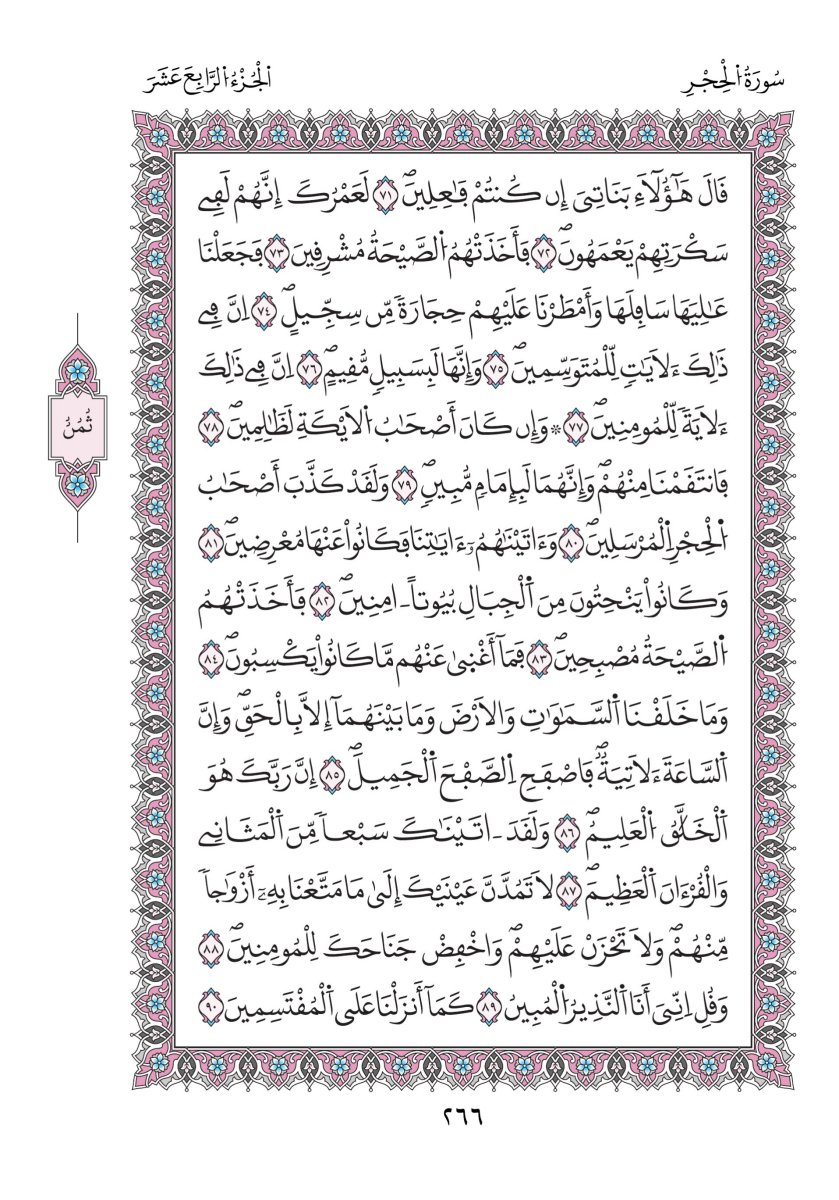 سُورَةُ اُلْحِجْرِ
اُلْجُزْءُ اُلرَّابِعَ عَشَرَ
قَالَ هَٰٓؤُلَآءِ بَنَاتِيَ إِن كُنتُمْ فَٰعِلِينَۖ ٧١ لَعَمْرُكَ إِنَّهُمْ لَفِے
سَكْرَتِهِمْ يَعْمَهُونَۖ ٧٢ فَأَخَذَتْهُمُ اُلصَّيْحَةُ مُشْرِقِينَ ٧٣ فَجَعَلْنَا
عَٰلِيَهَا سَافِلَهَا وَأَمْطَرْنَا عَلَيْهِمْ حِجَارَةٗ مِّن سِجِّيلٍۖ ٧٤ اِنَّ فِے
ذَٰلِكَ ءَلَايَٰتٖ لِّلْمُتَوَسِّمِينَۖ ٧٥ وَإِنَّهَا لَبِسَبِيلٖ مُّقِيمٍۖ ٧٦ اِنَّ فِے ذَٰلِكَ
ءَلَايَةٗ لِّلْمُومِنِينَۖ ٧٧ ۞ وَإِن كَانَ أَصْحَٰبُ اُلَايْكَةِ لَظَٰلِمِينَۖ ٧٨
فَانتَقَمْنَا مِنْهُمْۖ وَإِنَّهُمَا لَبِإِمَامٖ مُّبِينٖۖ ٧٩ وَلَقَدْ كَذَّبَ أَصْحَٰبُ
ثُمُنُ
اُلْحِجْرِ اِلْمُرْسَلِينَۖ ٨٠ وَءَاتَيْنَٰهُمُۥٓ ءَايَٰتِنَا فَكَانُواْ عَنْهَا مُعْرِضِينَۖ ٨١
وَكَانُواْ يَنْحِتُونَ مِنَ اَلْجِبَالِ بُيُوتاً ـ اٰمِنِينَۖ ٨٢ فَأَخَذَتْهُمُ
اُلصَّيْحَةُ مُصْبِحِينَۖ ٨٣ فَمَآ أَغْنىٰ عَنْهُم مَّا كَانُواْ يَكْسِبُونَۖ ٨٤
وَمَا خَلَقْنَا اَلسَّمَٰوَٰتِ وَالَارْضَ وَمَا بَيْنَهُمَآ إِلَّا بِالْحَقِّۖ وَإِنَّ
اَلسَّاعَةَ ءَلَاتِيَةٞۖ فَاصْفَحِ اِلصَّفْحَ اَلْجَمِيلَۖ ٨٥ إِنَّ رَبَّكَ هُوَ
اَلْخَلَّٰقُ اُلْعَلِيمُۖ ٨٦ وَلَقَدَ ـ اتَيْنَٰكَ سَبْعاٗ مِّنَ اَلْمَثَانِے
وَالْقُرْءَانَ اَلْعَظِيمَۖ ٨٧ لَا تَمُدَّنَّ عَيْنَيْكَ إِلَىٰ مَا مَتَّعْنَا بِهِۦٓ أَزْوَٰجاٗ
مِّنْهُمْۖ وَلَا تَحْزَنْ عَلَيْهِمْۖ وَاخْفِضْ جَنَاحَكَ لِلْمُومِنِينَۖ ٨٨
وَقُلِ اِنِّيَ أَنَا اَلنَّذِيرُ اُلْمُبِينُۖ ٨٩ كَمَآ أَنزَلْنَا عَلَى اَلْمُقْتَسِمِينَ ٩٠
٢٦٦